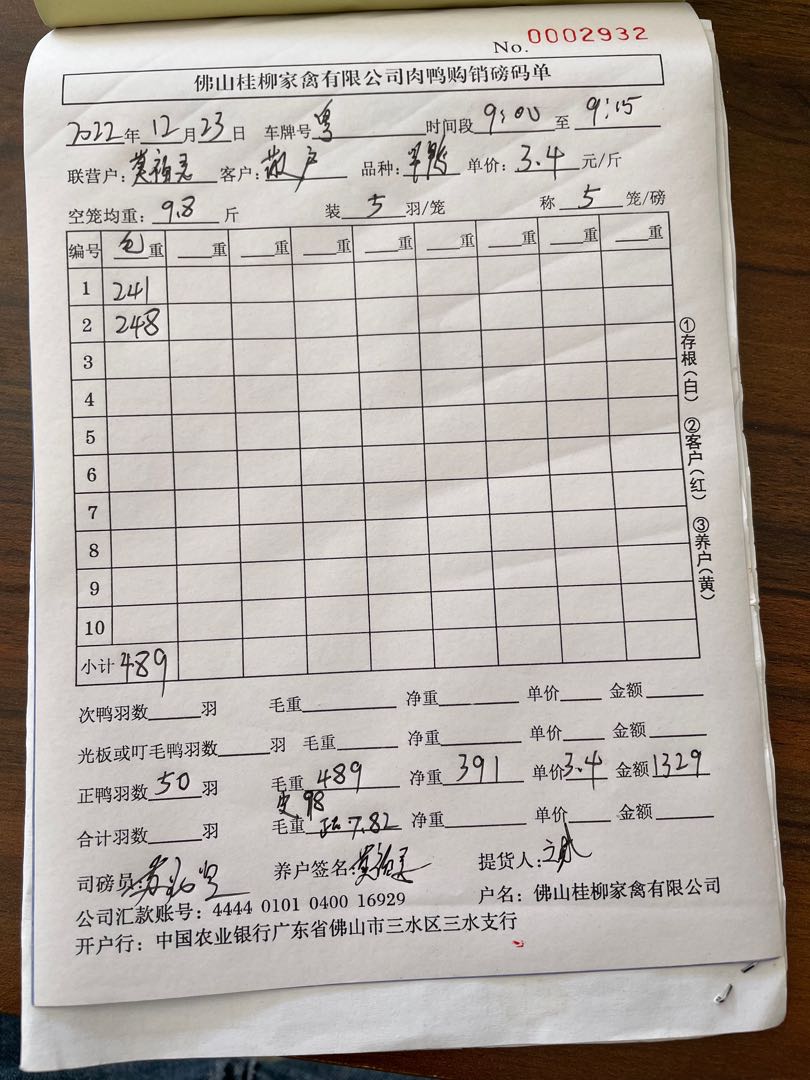 No. 0002932
佛山桂柳家禽有限公司肉鸭购销磅码单
2022年12月23日 车牌号 粤 时间段 9:00 至 9:15
联营户: 客户: 散户 品种: 单价: 3.4 元/斤
空笼均重: 9.8 斤 装 5 羽/笼 称 5 笼/磅
编号 毛重 重 重 重 重 重 重 重 重
1 241
2 248
3
4
5
6
7
8
9
10
小计 489
①存根(白) ②客户(红) ③养户(黄)
次鸭羽数 羽 毛重 净重 单价 金额
光板或叮毛鸭羽数 羽 毛重 净重 单价 金额
正鸭羽数 50 羽 毛重 489 净重 391 单价 3.4 金额 1329
98
合计羽数 羽 毛重 7.82 净重 单价 金额
司磅员: 养户签名: 提货人:
公司汇款账号: 4444 0101 0400 16929 户名: 佛山桂柳家禽有限公司
开户行: 中国农业银行广东省佛山市三水区三水支行